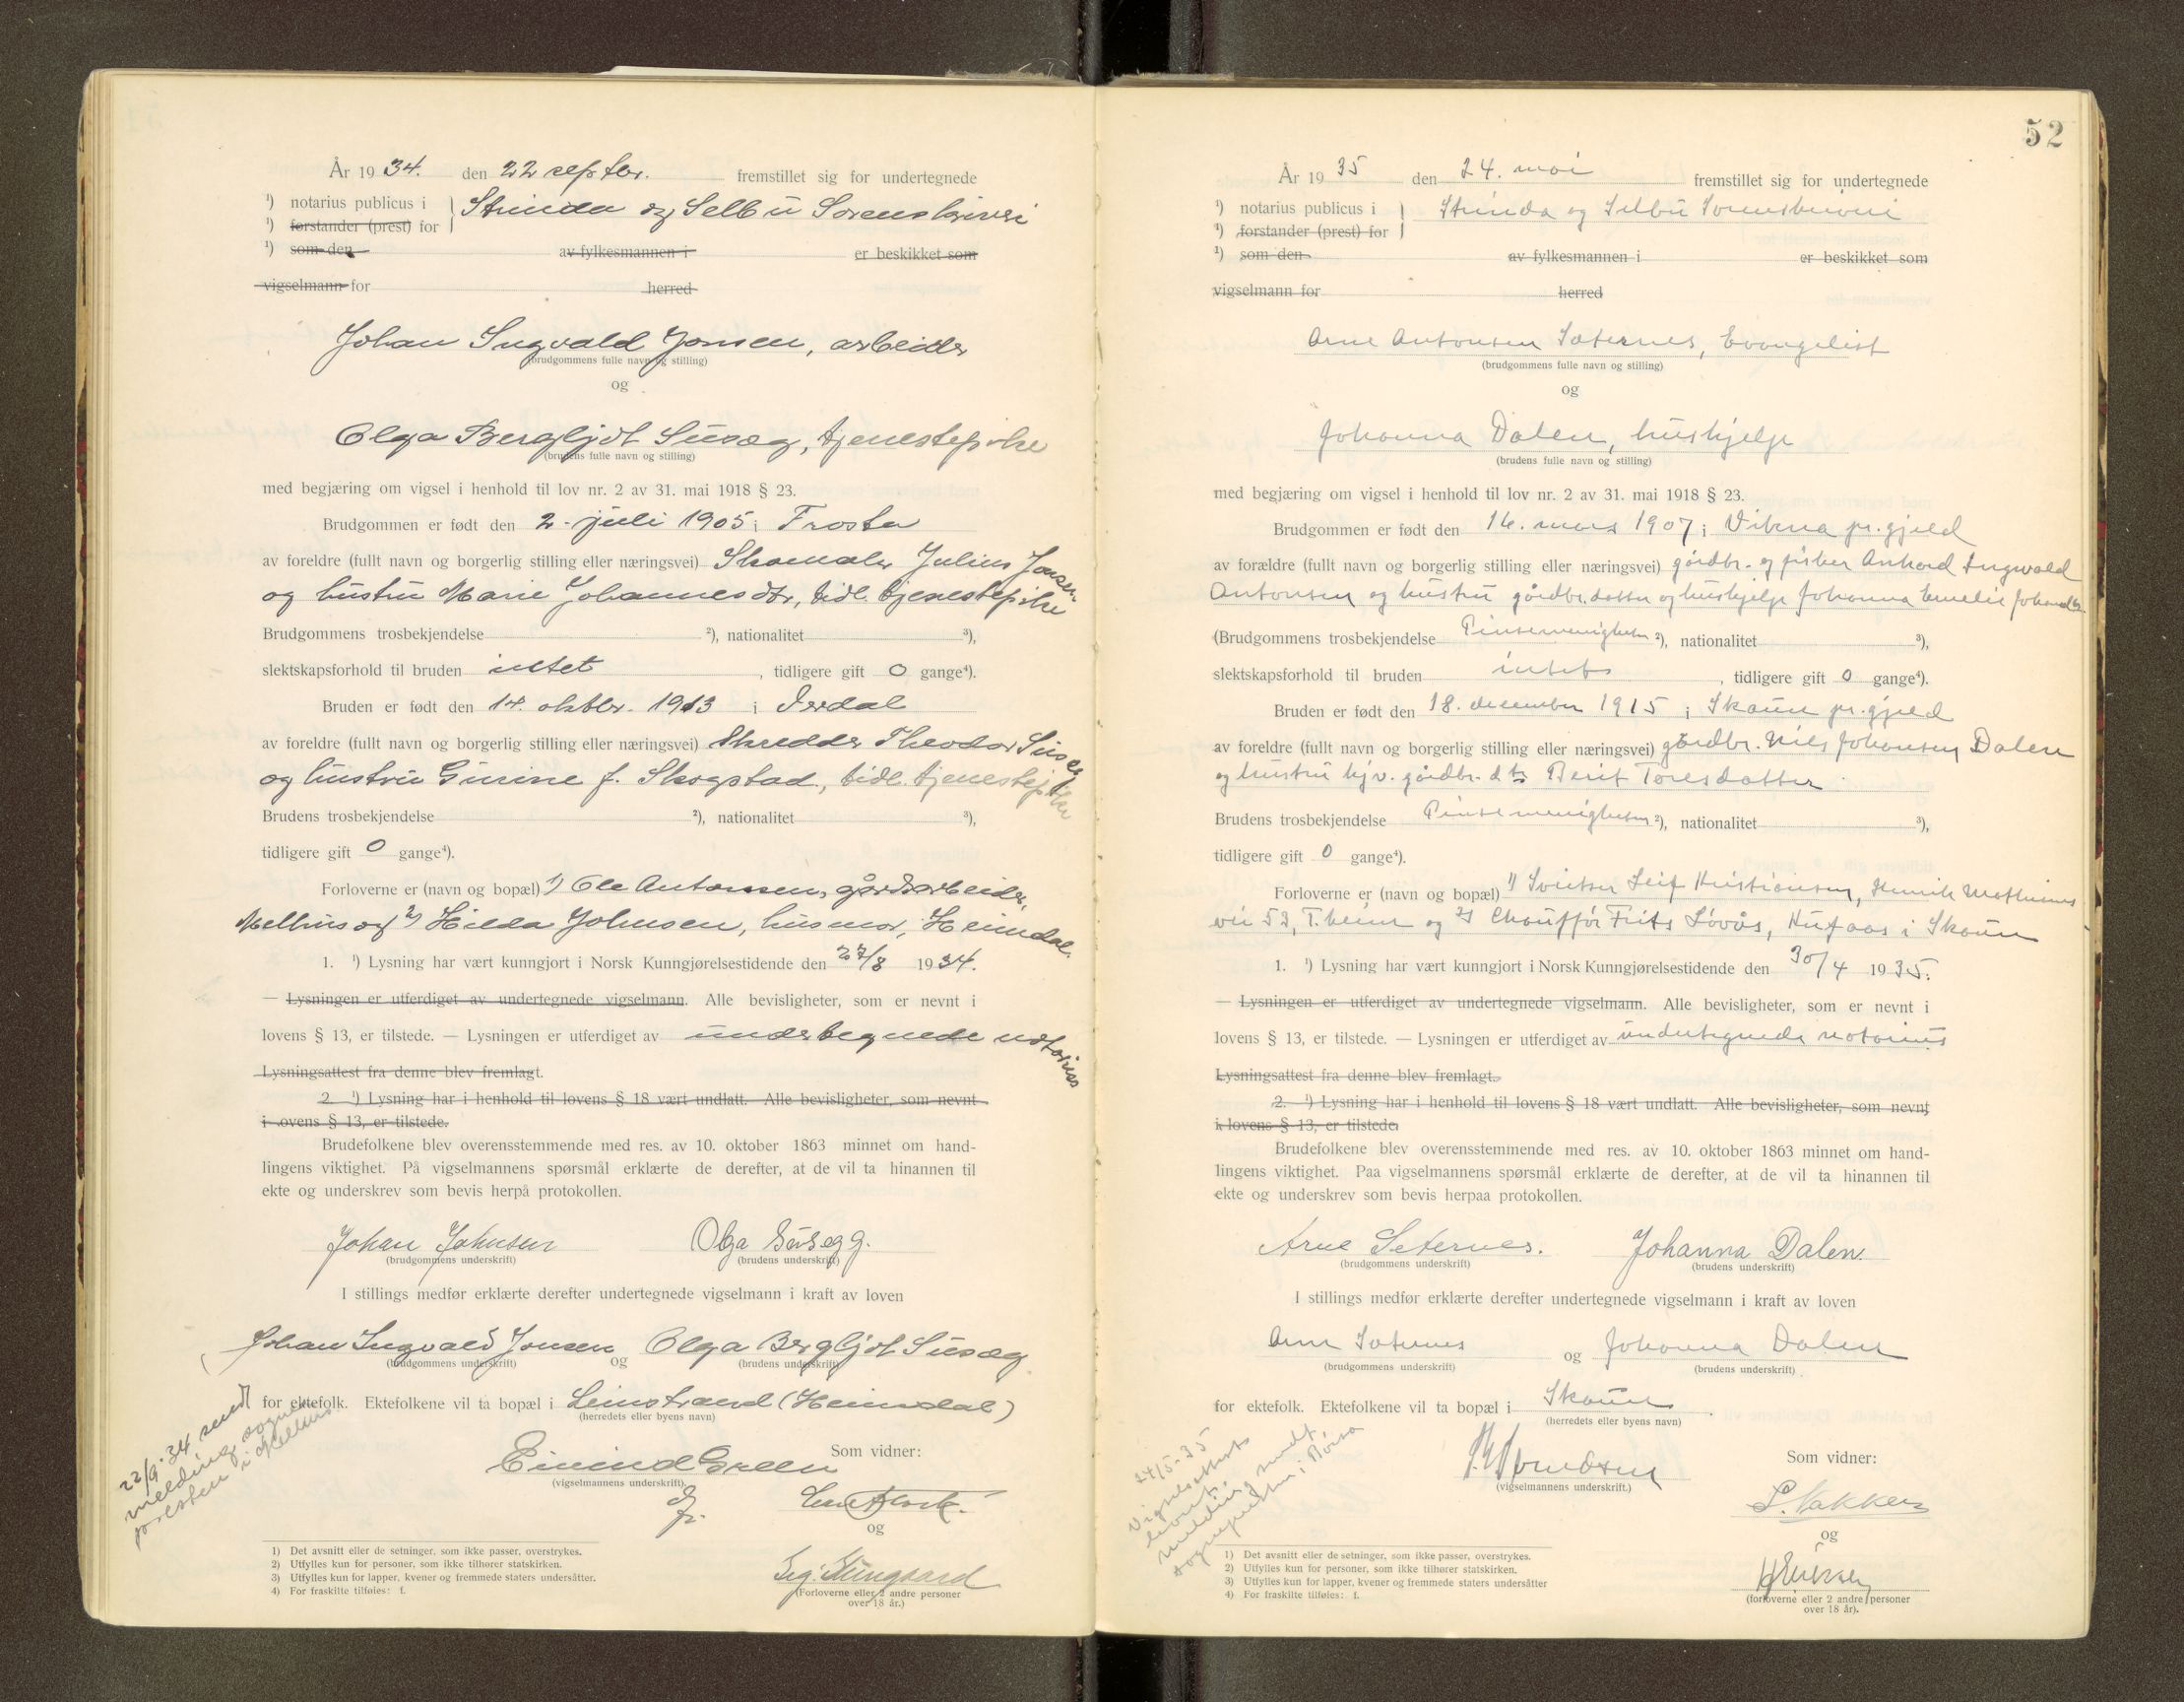 År 1934. den 22 septbr. fremstillet sig for undertegnede
¹) notarius publicus i Strinda og Selbu Sorenskriveri
¹) forstander (prest) for
¹) som den av fylkesmannen i er beskikket som
vigselmann for herred
Johan Ingvald Jonsen, arbeider
(brudgommens fulle navn og stilling)
og
Olga Bergljot Susæg, tjenestepike
(brudens fulle navn og stilling)
med begjæring om vigsel i henhold til lov nr. 2 av 31. mai 1918 § 23.
Brudgommen er født den 2. juli 1905 i Frosta
av foreldre (fullt navn og borgerlig stilling eller næringsvei) Skomaker Julius Jonsen
og hustru Marie Johannesdtr, tidl. tjenestepike
Brudgommens trosbekjendelse ²), nationalitet ³),
slektskapsforhold til bruden intet, tidligere gift 0 gange⁴).
Bruden er født den 14. oktbr. 1913 i
av foreldre (fullt navn og borgerlig stilling eller næringsvei) Skredder Theodor Susæg
og hustru Gurine f. Skogstad, tidl. tjenestepike
Brudens trosbekjendelse ²), nationalitet ³),
tidligere gift 0 gange⁴).
Forloverne er (navn og bopæl) 1) Ole Antonsen, gårdsarbeider,
Melhus og 2) Hilda Johnsen, husmor, Heimdal.
1. ¹) Lysning har vært kunngjort i Norsk Kunngjørelsestidende den 27/8 1934.
— Lysningen er utferdiget av undertegnede vigselmann. Alle bevisligheter, som er nevnt i
lovens § 13, er tilstede. — Lysningen er utferdiget av undertegnede notarius
Lysningsattest fra denne blev fremlagt.
2. ¹) Lysning har i henhold til lovens § 18 vært undlatt. Alle bevisligheter, som nevnt
i lovens § 13, er tilstede.
Brudefolkene blev overensstemmende med res. av 10. oktober 1863 minnet om hand-
lingens viktighet. På vigselmannens spørsmål erklærte de derefter, at de vil ta hinannen til
ekte og underskrev som bevis herpå protokollen.
Johan Johnsen Olga Susegg.
(brudgommens underskrift) (brudens underskrift)
I stillings medfør erklærte derefter undertegnede vigselmann i kraft av loven
Johan Ingvald Jonsen og Olga Bergljot Susæg
(brudgommens underskrift) (brudens underskrift)
for ektefolk. Ektefolkene vil ta bopæl i Leinstrand (Heimdal)
(herredets eller byens navn)
22/9-34 sendt
melding sogne
presten i Melhus
Som vidner:
Eivind Green
(vigselmannens underskrift).
og
(Forloverne eller 2 andre personer
over 18 år.)
1) Det avsnitt eller de setninger, som ikke passer, overstrykes.
2) Utfylles kun for personer, som ikke tilhører statskirken.
3) Utfylles kun for lapper, kvener og fremmede staters undersåtter.
4) For fraskilte tilføies: f.
52
År 1935 den 24. mai fremstillet sig for undertegnede
¹) notarius publicus i Strinda og Selbu Sorenskriveri
¹) forstander (prest) for
¹) som den av fylkesmannen i er beskikket som
vigselmann for herred
Arne Antonsen Sæternes, Evangelist
(brudgommens fulle navn og stilling)
og
Johanna Dalen, hushjelp
(brudens fulle navn og stilling)
med begjæring om vigsel i henhold til lov nr. 2 av 31. mai 1918 § 23.
Brudgommen er født den 16. mars 1907 i Vikna pr.gjeld
av forældre (fullt navn og borgerlig stilling eller næringsvei) gårdbr. og fisker Ingvald
Antonsen og hustru gårdbr.datter og hushjelp Johanna Emelie
(Brudgommens trosbekjendelse Pinsemenigheten ²), nationalitet ³),
slektskapsforhold til bruden intet, tidligere gift 0 gange⁴).
Bruden er født den 18. desember 1915 i Skaun pr.gjeld
av foreldre (fullt navn og borgerlig stilling eller næringsvei) gårdbr. Nils Johansen Dalen
og hustru hjv. gårdbr.dtr Berit Toresdatter
Brudens trosbekjendelse Pinsemenigheten ²), nationalitet ³),
tidligere gift 0 gange⁴).
Forloverne er (navn og bopæl) 1) Sveitser Leif Kristiansen, Henrik Mathisens
vei 53, T.heim og 2) Chauffør Frits Løvås, i Skaun
1. ¹) Lysning har vært kunngjort i Norsk Kunngjørelsestidende den 30/4 1935.
— Lysningen er utferdiget av undertegnede vigselmann. Alle bevisligheter, som er nevnt i
lovens § 13, er tilstede. — Lysningen er utferdiget av undertegnede notarius
Lysningsattest fra denne blev fremlagt.
2. ¹) Lysning har i henhold til lovens § 18 vært undlatt. Alle bevisligheter, som nevnt
i lovens § 13, er tilstede
Brudefolkene blev overensstemmende med res. av 10. oktober 1863 minnet om hand-
lingens viktighet. Paa vigselmannens spørsmål erklærte de derefter, at de vil ta hinannen til
ekte og underskrev som bevis herpaa protokollen.
Arne Seternes. Johanna Dalen.
(brudgommens underskrift) (brudens underskrift)
I stillings medfør erklærte derefter undertegnede vigselmann i kraft av loven
Arne Sæternes og Johanna Dalen
(brudgommens underskrift) (brudens underskrift)
for ektefolk. Ektefolkene vil ta bopæl i Skaun
(herredets eller byens navn)
24/5-35
Vigselsattest
melding sendt
sognepresten i Børsa
Som vidner:
(vigselmannens underskrift.)
og
(forloverne eller 2 andre personer
over 18 år).
1) Det avsnitt eller de setninger, som ikke passer, overstrykes.
2) Utfylles kun for personer, som ikke tilhører statskirken.
3) Utfylles kun for lapper, kvener og fremmede staters undersåtter
4) For fraskilte tilføies: f.